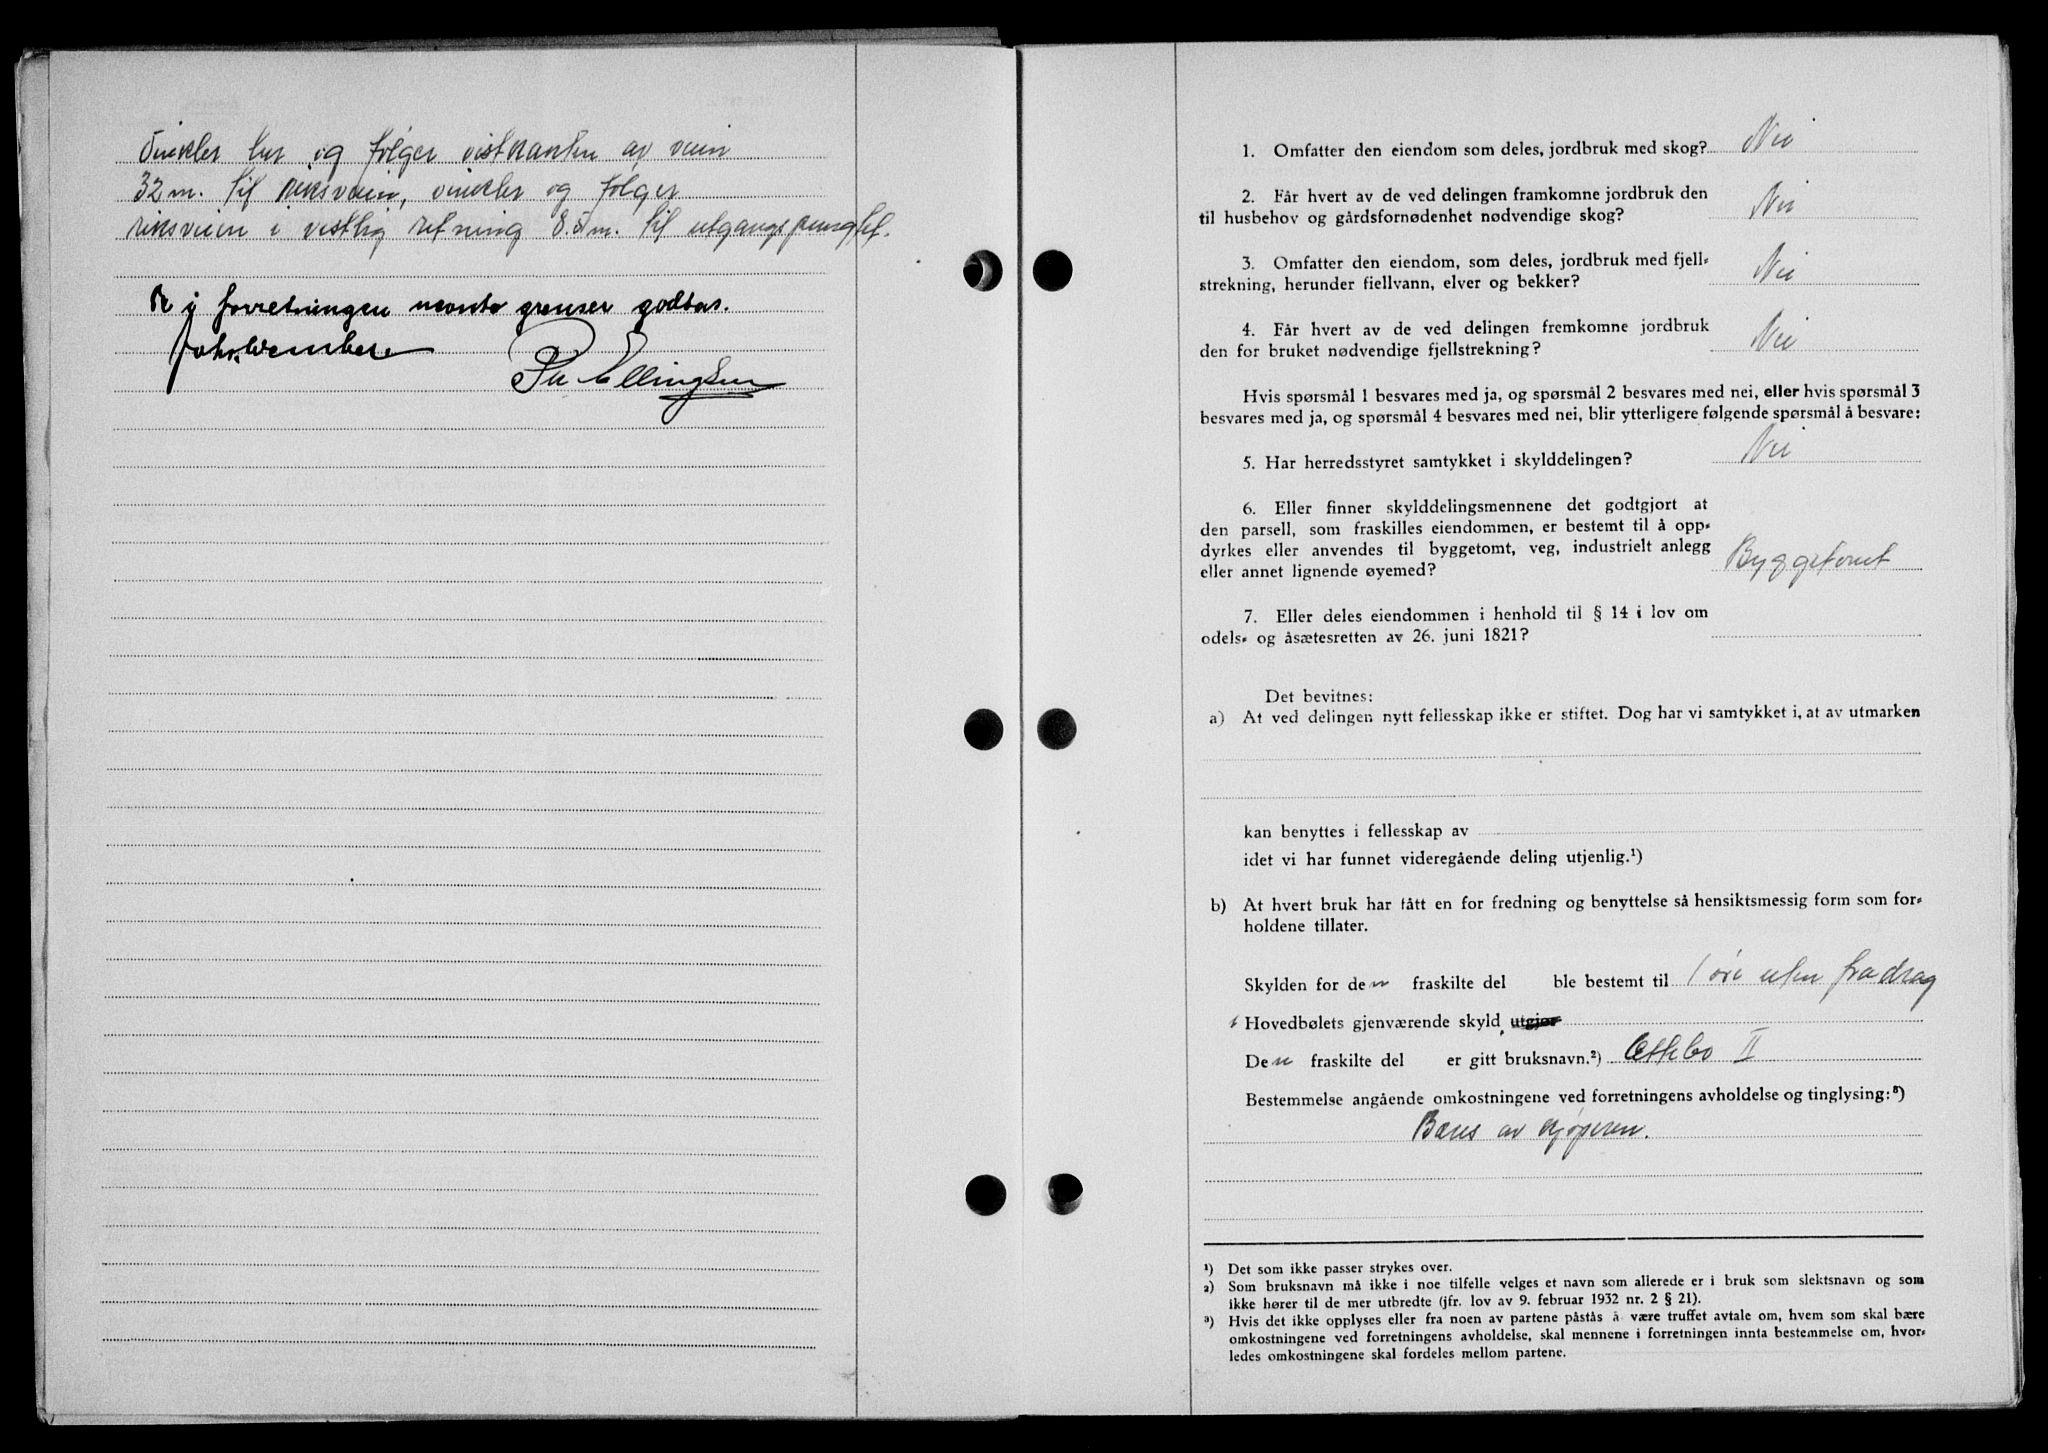 vinkler her og følger vestkanten av veien
32 m. til riksveien, vinkler og følger
riksveien i vestlig retning 8.5 m. til utgangspungtet.
De i forretningen nevnte grenser godtas.
Ellingsen
1. Omfatter den eiendom som deles, jordbruk med skog? Nei
2. Får hvert av de ved delingen framkomne jordbruk den
til husbehov og gårdsfornødenhet nødvendige skog? Nei
3. Omfatter den eiendom, som deles, jordbruk med fjell-
strekning, herunder fiellvann, elver og bekker? Nei
4. Får hvert av de ved delingen fremkomne jordbruk
den for bruket nødvendige fjellstrekning? Nei
Hvis spørsmål 1 besvares med ja, og spørsmål 2 besvares med nei, eller hvis spørsmål 3
besvares med ja, og spørsmål 4 besvares med nei, blir ytterligere følgende spørsmål å besvare:
5. Har herredsstyret samtykket i skylddelingen? Nei
6. Eller finner skylddelingsmennene det godtgjort at
den parsell, som fraskilles eiendommen, er bestemt til å opp-
dyrkes eller anvendes til byggetomt, veg, industrielt anlegg
eller annet lignende øyemed? Byggetomt
7. Eller deles eiendommen i henhold til § 14 i lov om
odels- og åsætesretten av 26. juni 1821?
Det bevitnes:
a) At ved delingen nytt fellesskap ikke er stiftet. Dog har vi samtykket i, at av utmarken
kan benyttes i fellesskap av
idet vi har funnet videregående deling utjenlig.¹)
b) At hvert bruk har fått en for fredning og benyttelse så hensiktsmessig form som for-
holdene tillater.
Skylden for den fraskilte del ble bestemt til 1 øre uten fradrag
i Hovedbølets gjenværende skyld, utgjør
Den fraskilte del er gitt bruksnavn.²) Ettebo II
Bestemmelse angående omkostningene ved forretningens avholdelse og tinglysing:³)
Bæres av kjøperen.
¹) Det som ikke passer strykes over.
²) Som bruksnavn må ikke i noe tilfelle velges et navn som allerede er i bruk som slektsnavn og som
ikke hører til de mer utbredte (jfr. lov av 9. februar 1932 nr. 2 § 21).
³) Hvis det ikke opplyses eller fra noen av partene påstås å være truffet avtale om, hvem som skal bære
omkostningene ved forretningens avholdelse, skal mennene i forretningen innta bestemmelse om, hvor-
ledes omkostningene skal fordeles mellom partene.